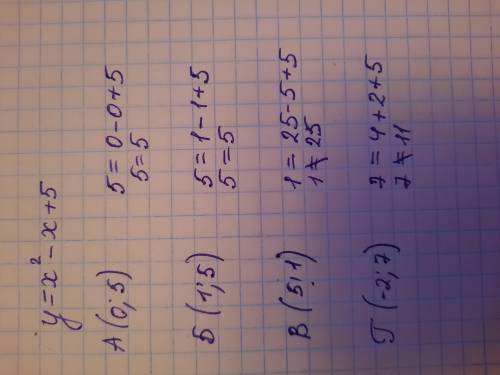 y=x²-x+5
А(0;5) 5=0-0+5
5=5
Б(1;5) 5=1-1+5
5=5
В(5;1) 1=25-5+5
1≠25
Г(-2;7) 7=4+2+5
7≠11